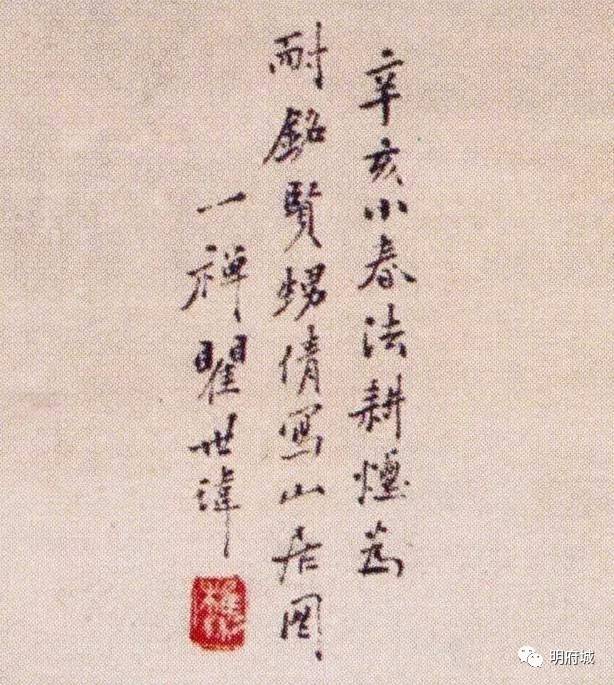 辛亥小春法耕煙為
耐銘賢甥倩寫山居圖
一禪瞿世瑋
明府城